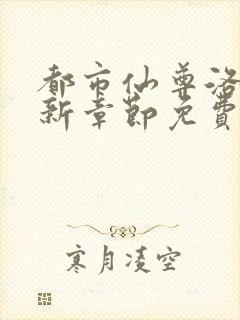 都市仙尊洛
新章節免費
寒月凌空